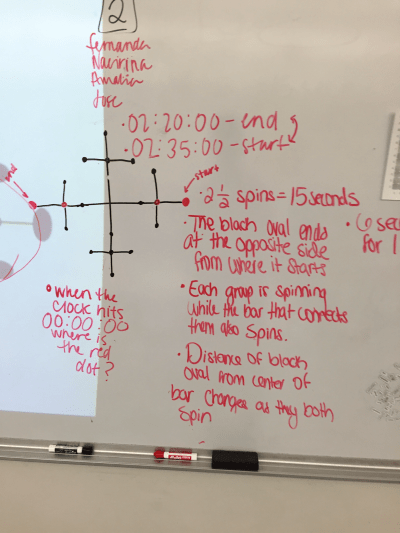 2
fernanda
Navirina
Amalia
Jose
• 02:20:00 - end
• 02:35:00 - start
start
end
• 2 1/2 spins = 15 seconds
• The black oval ends
at the opposite side
from where it starts
• 6 sec
for 1
• Each group is spinning
while the bar that connects
them also spins.
• when the
clock hits
00:00:00
where is
the red
dot?
• Distance of black
oval from center of
bar changes as they both
spin